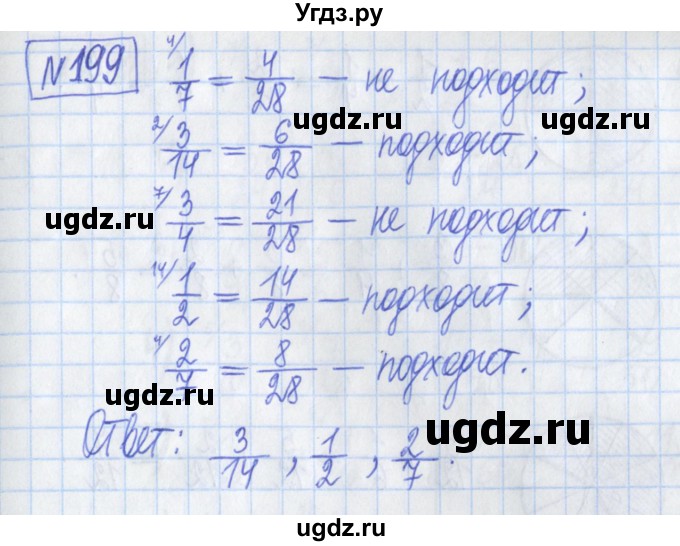 Угдз.ру
№199 4/ 1/7 = 4/28 — не подходит;
2/ 3/14 = 6/28 — подходит;
7/ 3/4 = 21/28 — не подходит;
14/ 1/2 = 14/28 — подходит;
4/ 2/7 = 8/28 — подходит.
Ответ: 3/14, 1/2, 2/7.
ugdz.ru
ugdz.ru
ugdz.ru
ugdz.ru
ugdz.ru
ugdz.ru
ugdz.ru
ugdz.ru
ugdz.ru